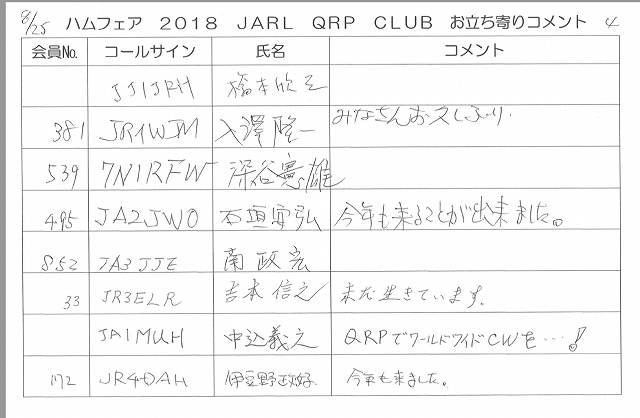 8/25 ハムフェア 2018 JARL QRP CLUB お立ち寄りコメント 4
会員No. コールサイン 氏名 コメント
JJ1JRH 橋本欣正
381 JR1WJM 入澤隆一 みなさんお久しぶり.
539 7N1RFW 深谷憲雄
495 JA2JWO 石垣安弘 今年も来ることが出来ました。
852 JA3JJE 南政宏
33 JR3ELR 吉本信之 未だ生きています.
JA1MUH 中込義之 QRPでワールドワイドCWを…!
1172 JR4DAH 伊豆野政好 今年も来ました。